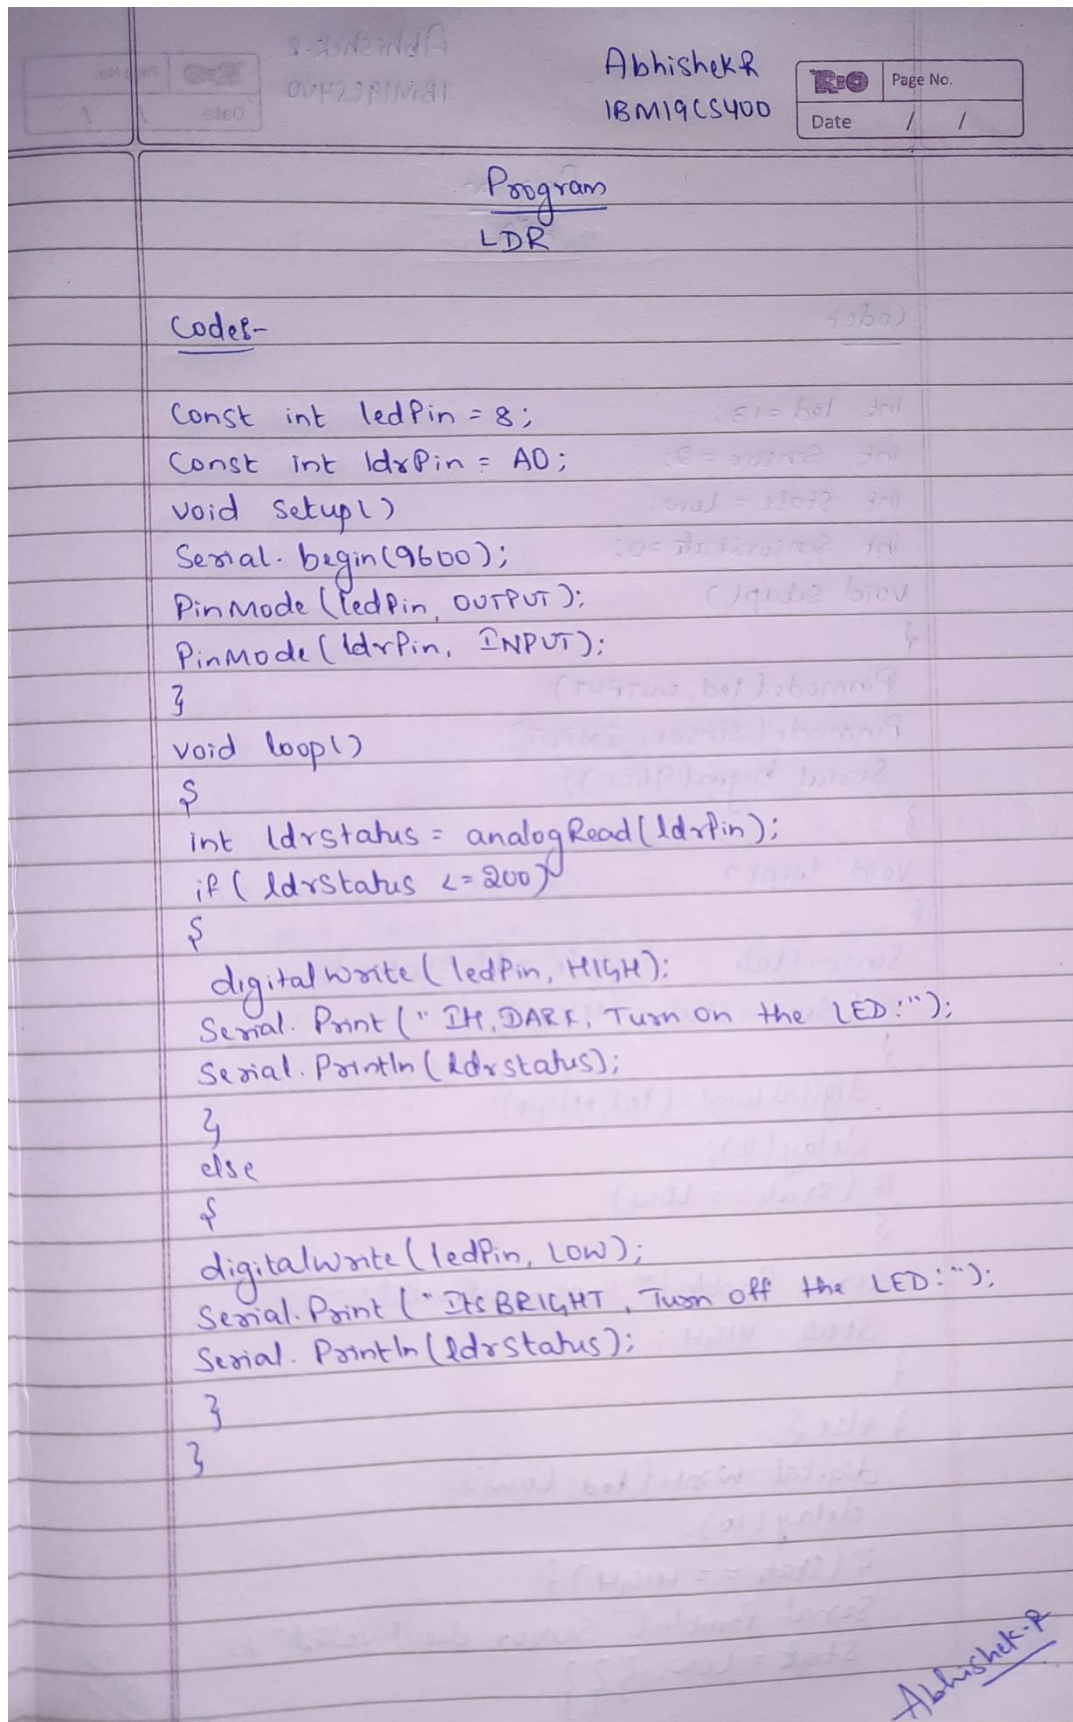 Abhishek R
1BM19CS400
RIO Page No.
Date / /
Program
LDR
Code:-
Const int ledPin = 8;
Const int ldrPin = A0;
void setup()
Serial. begin(9600);
PinMode (ledPin, OUTPUT);
PinMode (ldrPin, INPUT);
}
void loop()
{
int ldrstatus = analogRead(ldrPin);
if ( ldrStatus <= 200)
{
digitalWrite ( ledPin, HIGH);
Serial. Print (" Its DARK, Turn on the LED:");
Serial. Println (ldrstatus);
}
else
{
digitalwrite ( ledPin, LOW);
Serial. Print (" Its BRIGHT, Turn off the LED:");
Serial. Println (ldrStatus);
}
}
Abhishek.R